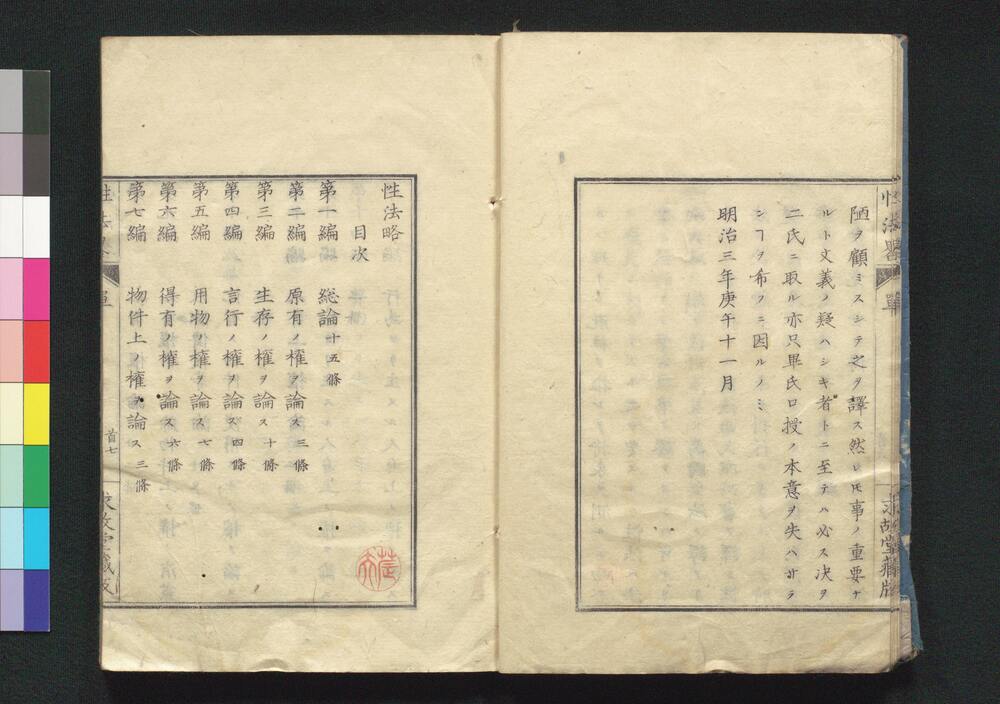 陋ヲ顧ミスシテ之ヲ譯ス然レ𪜈事ノ重要ナ
ルト文義ノ疑ハシキ者トニ至テハ必ス决ヲ
二氏ニ取ル亦只畢氏口授ノ本意ヲ失ハサラ
ンヿヲ希フニ因ルノミ
明治三年庚午十一月
性法略
目次
第一編 総論十五條
第二編 原有ノ權ヲ論ス三條
第三編 生存ノ權ヲ論ス十條
第四編 言行ノ權ヲ論ス四條
第五編 用物ノ權ヲ論ス七條
第六編 得有ノ權ヲ論ス六條
第七編 物件上ノ權ヲ論ス三條
首七